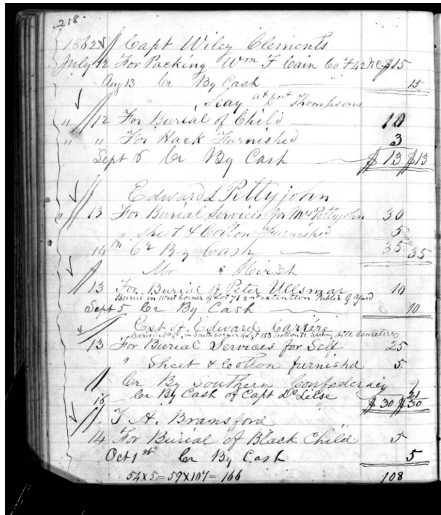 218
1862 Capt Wiley Clements
July 12 For Packing Wm F Cain Co F 42 NC $15
Aug 13 Cr By Cash 15
at Thompsons
" 12 For Burial of Child 10
" " For Hack Furnished 3
Sept 8 Cr By Cash $13 $13
Edward Pettyjohn
" 13 For Burial Services for Mrs Pettyjohn 30
" Sheet & Cotton Furnished 5
14th Cr By Cash 35 35
Mr Hirsh
13 For Burial of Peter Ullsmar 10
Buried in West Corner of Lot 71 2nd extention Public G Yard
Sept 5 Cr By Cash 10
Est of Edward
Buried No 1 in Lot 183
13 For Burial Services for Self 25
Sheet & Cotton furnishd 5
Cr By Southern Confederacy 9
18 Cr By Cash of Capt DeLisle 21
$30 $30
T. A. Bransford
14 For Burial of Black Child 5
Oct 1st Cr By Cash 5
54 x 5 = 59 x 107 = 166 108